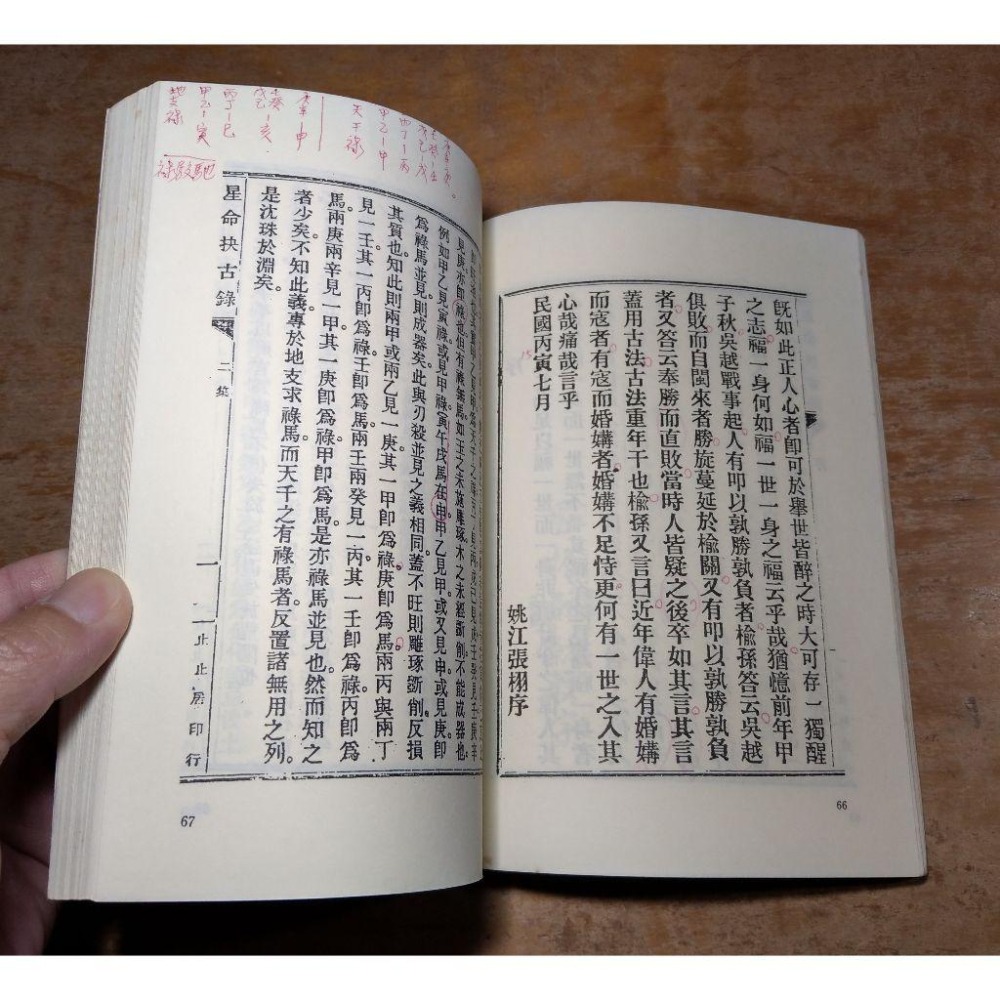 旣如此正人心者卽可於舉世皆醉之時大可存一獨醒
之志福一身何如福一世一身之福云乎哉猶憶前年甲
子秋吳越戰事起人有叩以孰勝孰負者楡孫答云吳越
俱敗而自閩來者勝旋蔓延於楡關又有叩以孰勝孰負
者又答云奉勝而直敗當時人皆疑之後卒如其言其言
蓋用古法古法重年干也楡孫又言曰近年偉人有婚媾
而寇者有寇而婚媾者婚媾不足恃更何有一世之入其
心哉痛哉言乎
民國丙寅七月
姚江張栩序
66
見庚亦卽祿也但有祿無馬如玉之未施雕琢木之未經斲削不能成器也。
例如甲乙見寅祿或見甲祿寅午戌馬在申申甲乙見甲或又見申或見庚卽
爲祿馬並見則成器矣此與刃殺並見之義相同蓋不旺則雕琢斲削反損
其質也知此則兩甲或兩乙見一庚其一甲卽爲祿庚卽爲馬兩丙與兩丁
見一壬其一丙卽爲祿壬卽爲馬兩壬兩癸見一丙其一壬卽爲祿丙卽爲
馬兩庚兩辛見一甲其一庚卽爲祿甲卽爲馬是亦祿馬並見也然而知之
者少矣不知此義專於地支求祿馬而天干之有祿馬者反置諸無用之列。
是沈珠於淵矣。
星命抉古錄
一
止止居印行
67
庚辛-庚
壬癸-壬
戊己-戊
丙丁-丙
甲乙-甲
天干祿
庚辛-申
壬癸-亥
戊己
丙丁-巳
甲乙-寅
地支祿